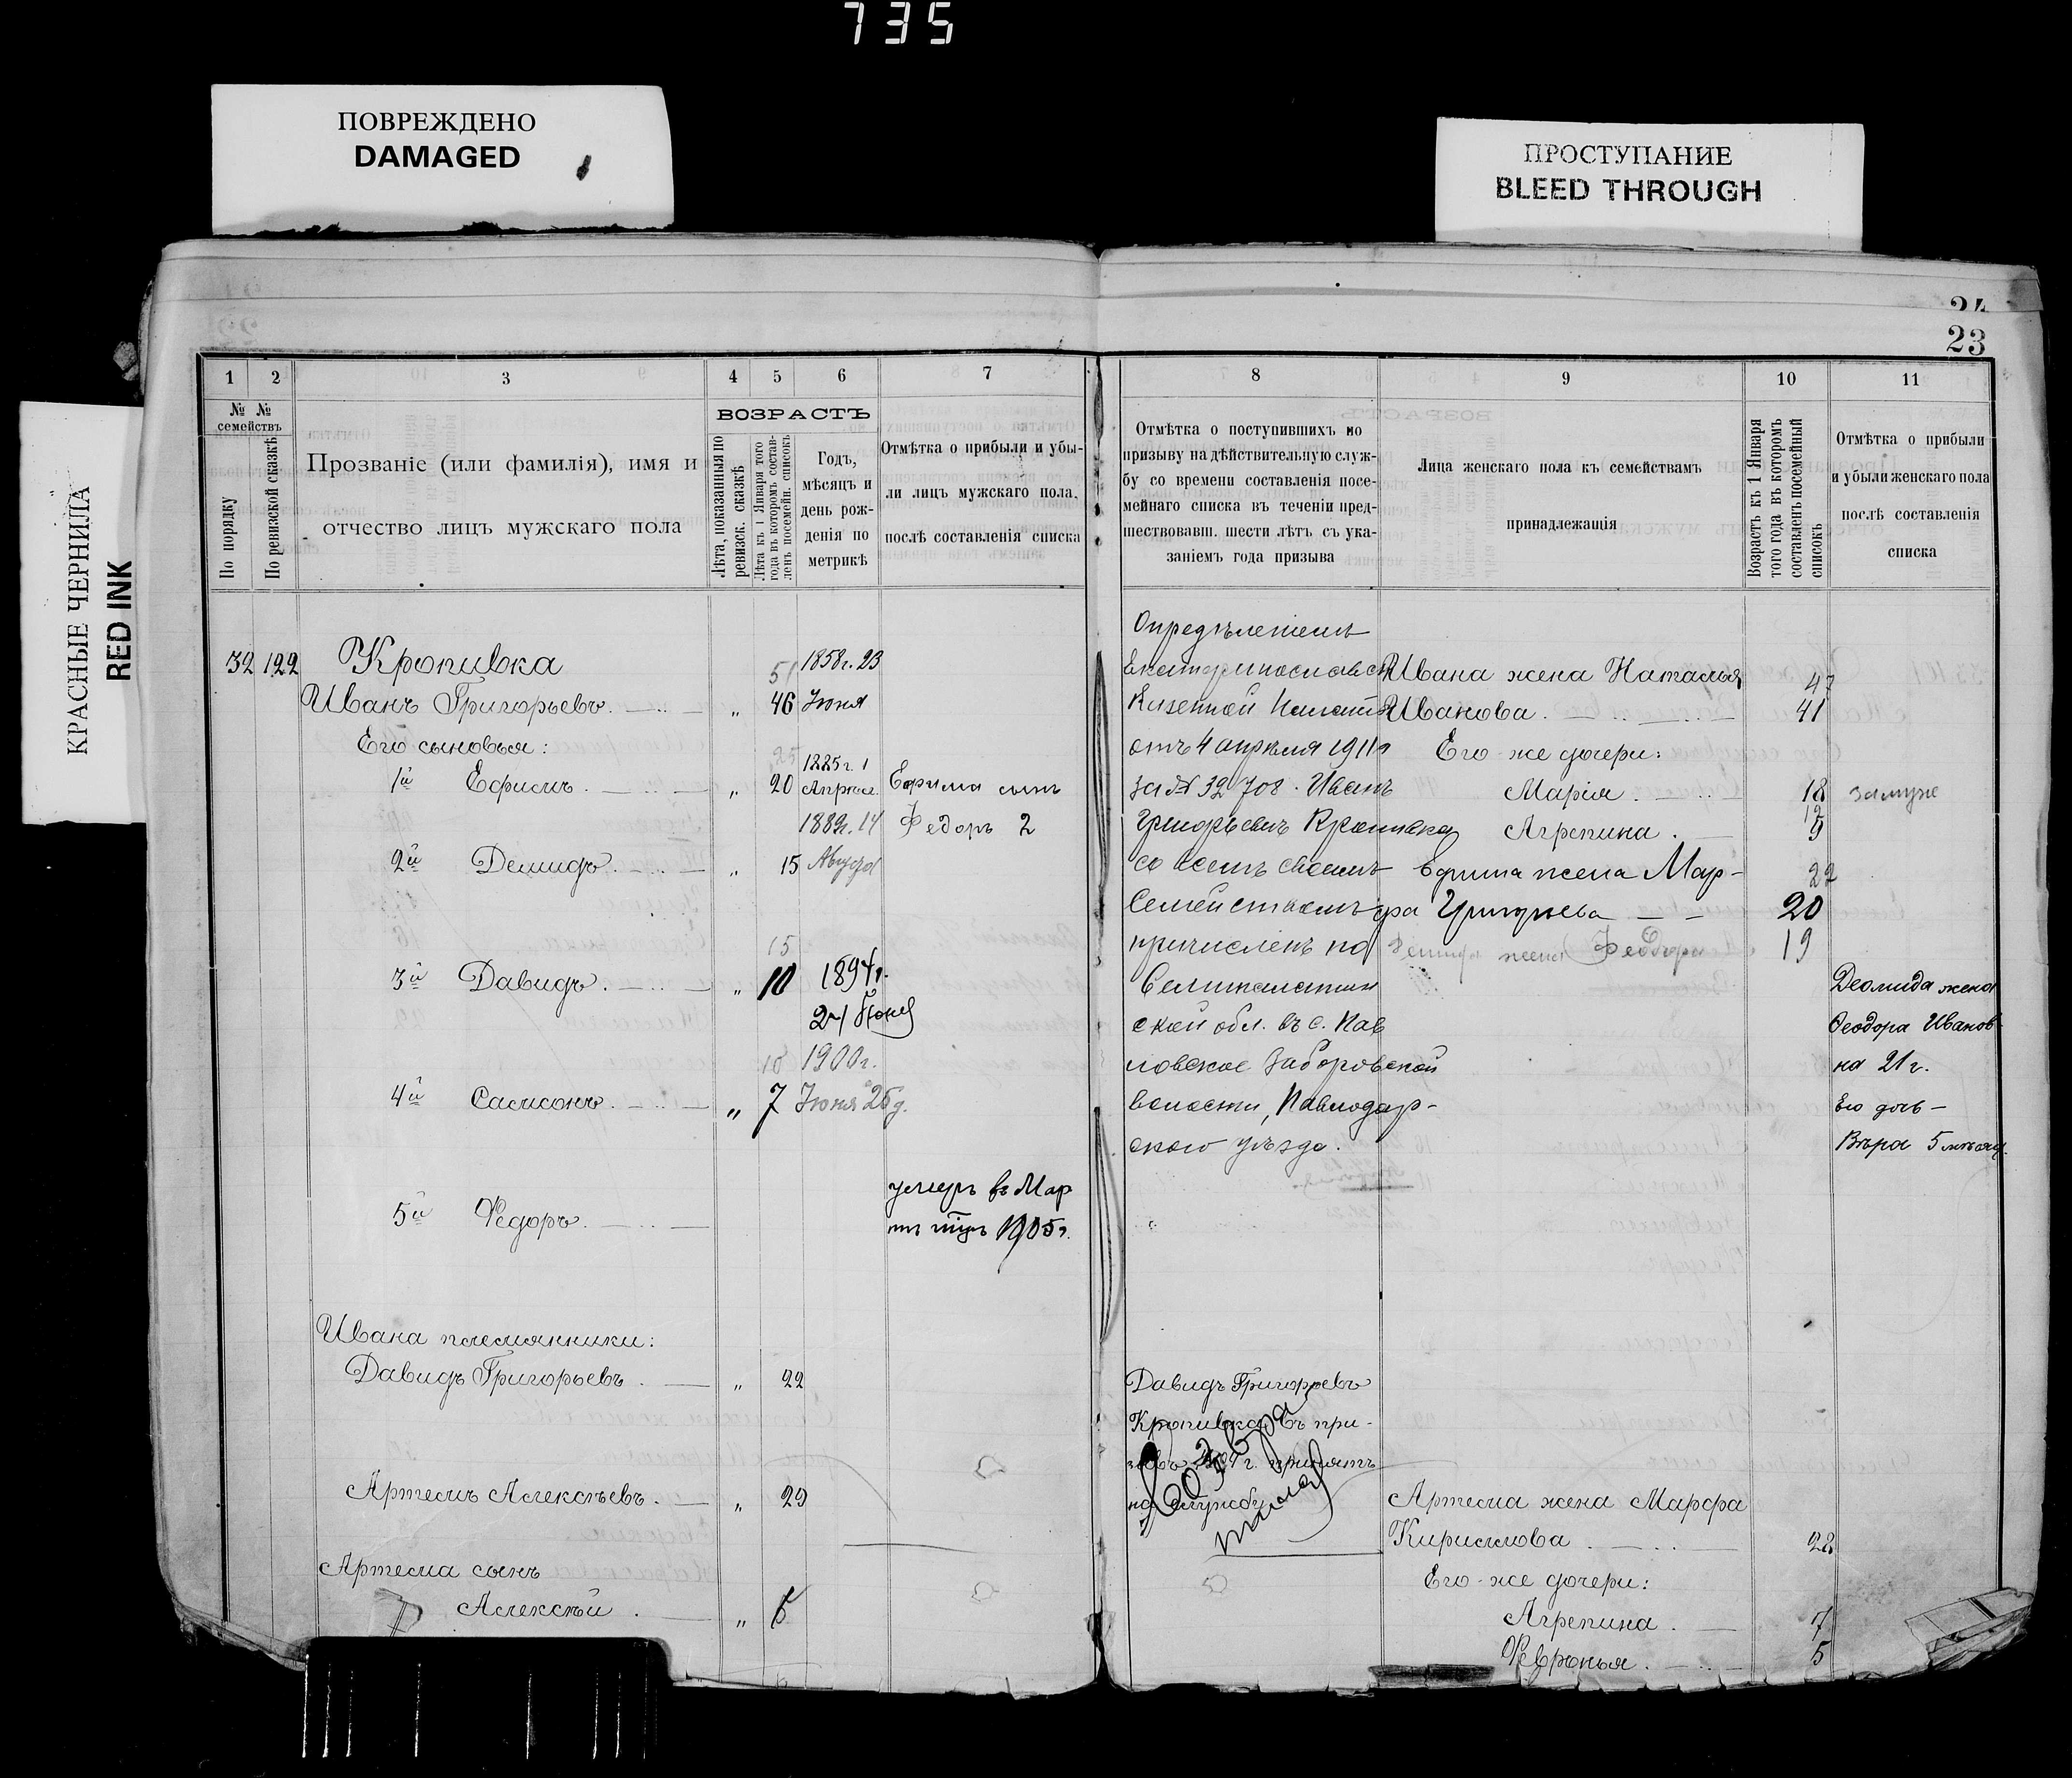 735
ПОВРЕЖДЕНО
DAMAGED
ПРОСТУПАНИЕ
BLEED THROUGH
КРАСНЫЕ ЧЕРНИЛА
RED INK
24
23
1 2 3 4 5 6 7
№ № семействъ
По порядку
По ревизской сказкѣ
Прозваніе (или фамилія), имя и
отчество лицъ мужскаго пола
ВОЗРАСТЪ
Лѣта, показанныя по
ревизск. сказкѣ
Лѣта къ 1 Января того
года въ которомъ состав-
ленъ посемейн. списокъ
Годъ,
мѣсяцъ и
день рож-
денія по
метрикѣ
Отмѣтка о прибыли и убы-
ли лицъ мужскаго пола,
послѣ составленія списка
32 122 Кропивка 51 1858г. 23
Иванъ Григорьевъ. „ 46 Іюня
Его сыновья: 25
1885г. 1
1й Ефимъ. „ 20 Апрѣля. Ефима сынъ
1889г. 14 Федоръ 2
2й Демидъ. „ 15 Августа
15
3й Давидъ. „ 10 1894г.
24 Іюня
10 1900г.
4й Самсонъ. „ 7 Іюня 25 д.
умеръ въ Мар
5й Федоръ. 1905г.
Ивана племянники:
Давидъ Григорьевъ. „ 22
Артемъ Алексѣевъ. „ 29
Артема сынъ
Алексѣй. „ 5
8 9 10 11
Отмѣтка о поступившихъ по
призыву на дѣйствительную служ-
бу со времени составленія посе-
мейнаго списка въ теченіи пред-
шествовавш. шести лѣтъ съ ука-
заніемъ года призыва
Лица женскаго пола къ семействамъ
принадлежащія
Возрастъ къ 1 Января
того года въ которомъ
составленъ посемейный
списокъ
Отмѣтка о прибыли
и убыли женскаго пола
послѣ составленія
списка
Опредѣленіемъ
Екатеринославск
Казенной Палаты
отъ 4 апрѣля 1911г
за № 32708. Иванъ
Григорьевичъ Кропивка
со всемъ своимъ
Семействомъ
причисленъ по
Семипалатин
ской обл. въ с. Пав
ловское Заборовской
волости, Павлодар-
скаго уѣзда.
Давидъ Григорьевъ
Кропивка въ при-
принятъ
на службу
Ивана жена Наталья 47
Иванова. 41
Его же дочери:
Марія. 18 замуже
12
Агрепина. 9
Ефима жена Мар- 22
фа Григорьева 20
Демида жена Феодора 19
Деомида жена
Феодора Иванов-
на 21г.
Его дочь -
Вѣра 5 мѣсяц.
Артема жена Марфа
Кирилова. 28
Его же дочери:
Агрепина. 7
Февронья. 5